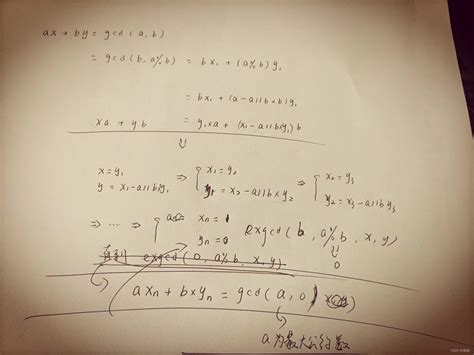 ax + by = gcd(a,b)
= gcd(b, a%b) = bx₁ + (a%b)y₁
= bx₁ + (a-a//b×b)y₁
xa + yb = y₁×a + (x₁-a//b×y₁)b
⇓
x=y₁ ⇒ { x₁=y₂ ⇒ { x₂=y₃
y=x₁-a//b)y₁ y₁=x₂-a//b×y₂ y₂=x₃-a//by₃
⇒ ... ⇒ { xₙ = 1
yₙ = 0 exgcd(b, a%b, x, y)
⇓
0
直到 exgcd(0, a%b, x, y)
axₙ + b×yₙ = gcd(a, 0)
a为最大公约数